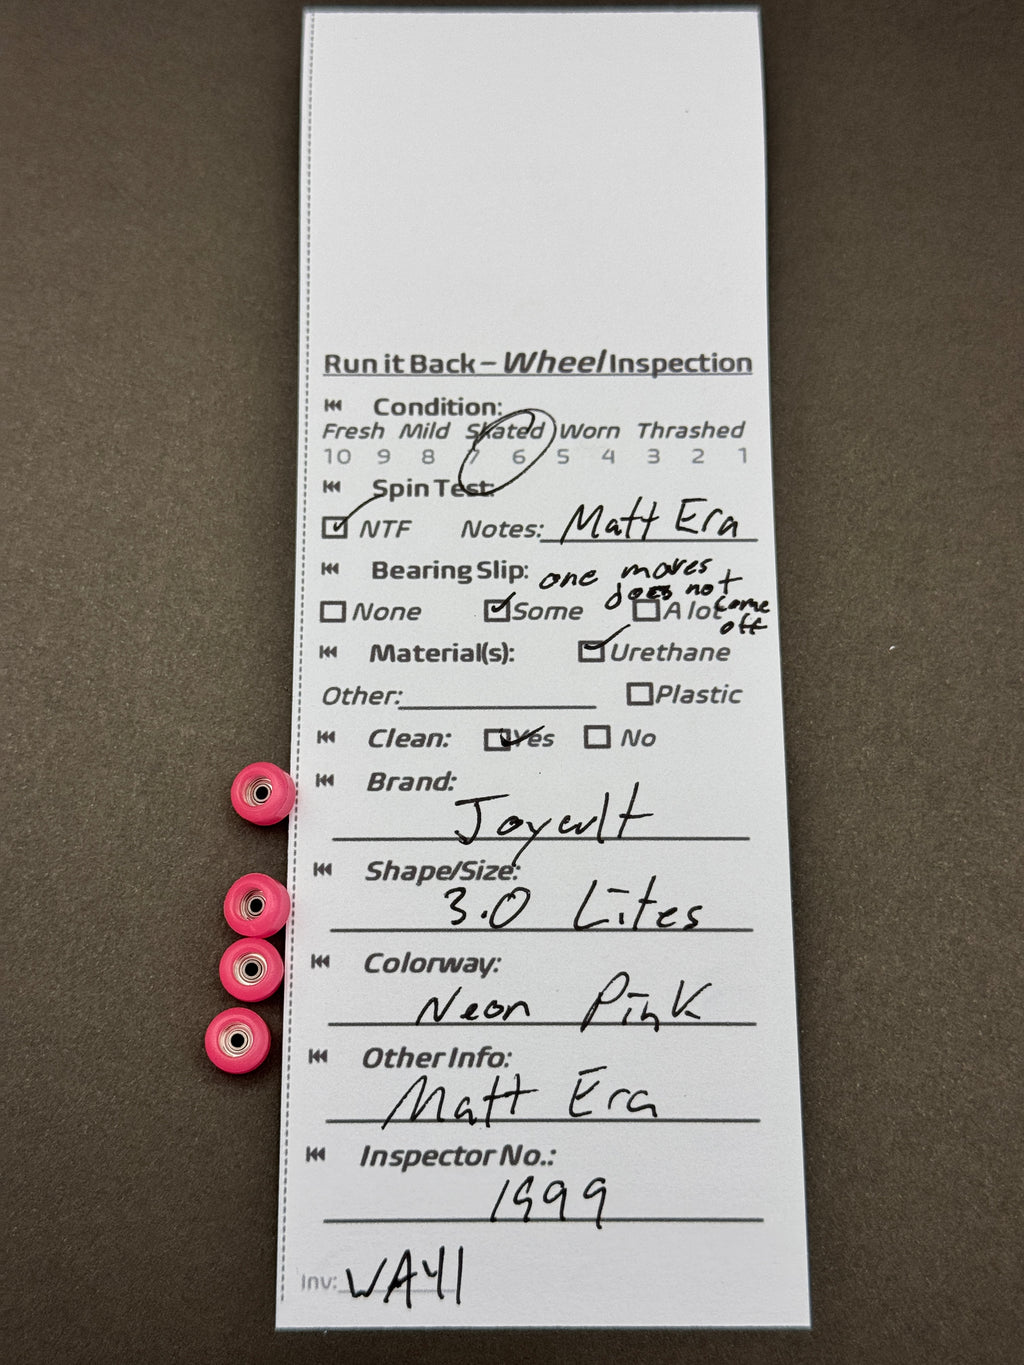 Run it Back – Wheel Inspection
Condition:
Fresh Mild Skated Worn Thrashed
10 9 8 7 6 5 4 3 2 1
Spin Test:
NTF Notes: Matt Era
Bearing Slip: one moves
does not
None Some A lot come
off
Material(s): Urethane
Other: Plastic
Clean: Yes No
Brand:
Joycult
Shape/Size:
3.0 Lites
Colorway:
Neon Pink
Other Info:
Matt Era
Inspector No.:
1999
Inv: WA41